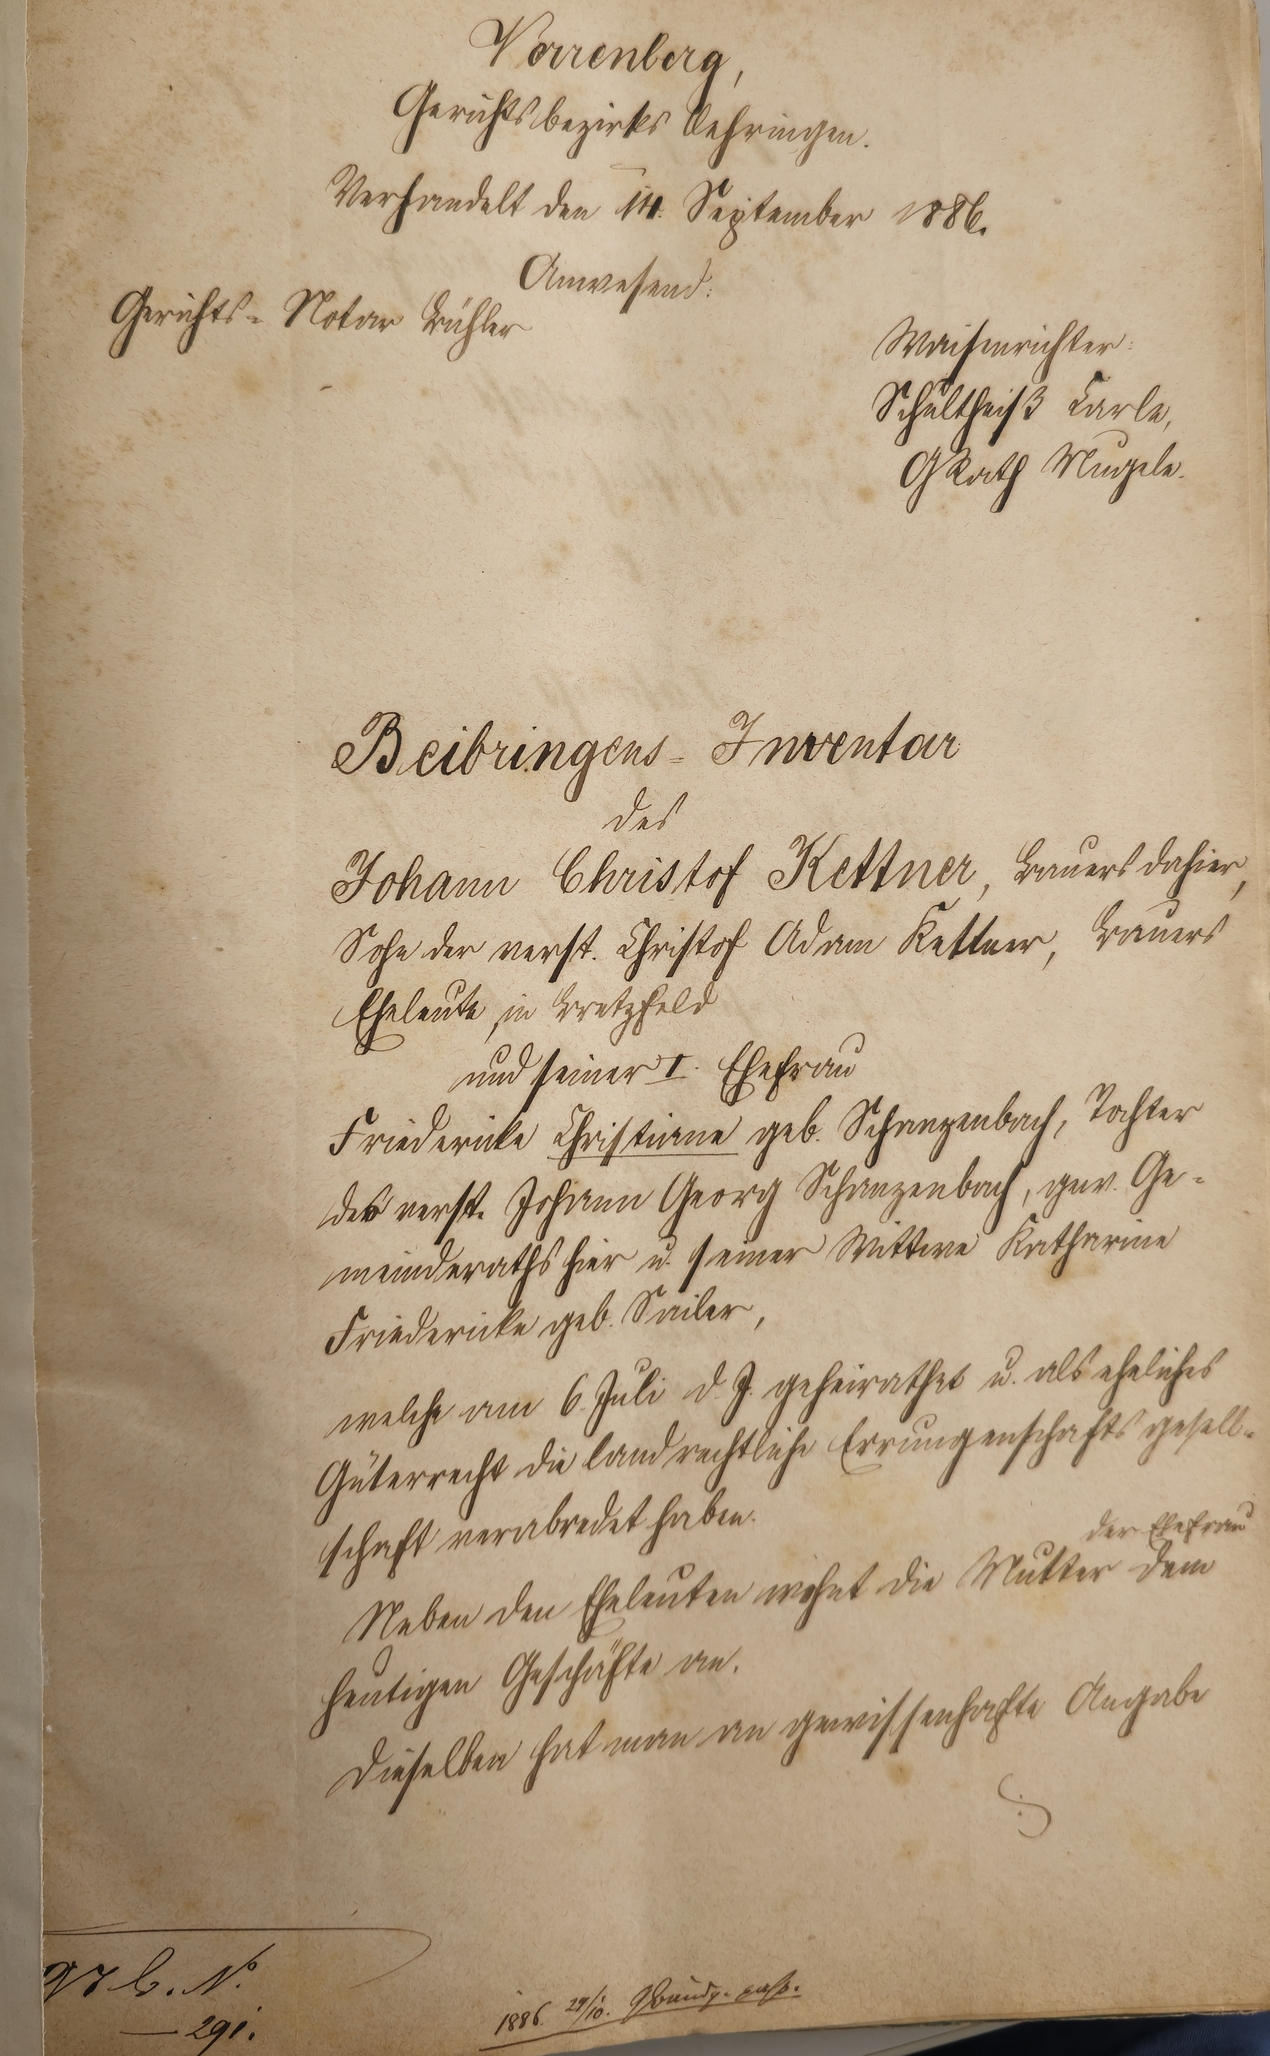 Verrenberg,
Gerichtsbezirks Oehringen.
Verhandelt den 14. September 1886.
Anwesend:
Gerichts-Notar Bühler
Waisenrichter:
Schultheiß Carle,
GRath Mugele.
Beibringens-Inventar
des
Johann Christof Kettner, Bauers dahier,
Sohn der verst. Christof Adam Kettner, Bauers
Eheleute in Bretzfeld
und seiner I. Ehefrau
Friedericke Christiane geb. Schanzenbach, Tochter
des verst. Johann Georg Schanzenbach, gew. Ge-
meinderaths hier u. seiner Wittwe Katharine
Friedericke geb. Sailer,
welche am 6. Juli d. J. geheirathet u. als eheliches
Güterrecht die landrechtliche Errungenschaftsgesell-
schaft verabredet haben.
Neben den Eheleuten wohnt die Mutter der Ehefrau dem
heutigen Geschäfte an.
Dieselben hat man an gewissenhafte Angabe
No.
291.
1886. 29/10.